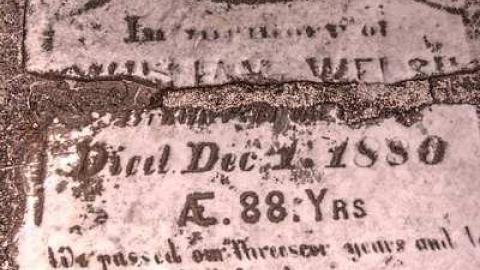 In memory of
WELSH
Died Dec. 1. 1880
Æ. 88: YRS
We passed our threescor years and